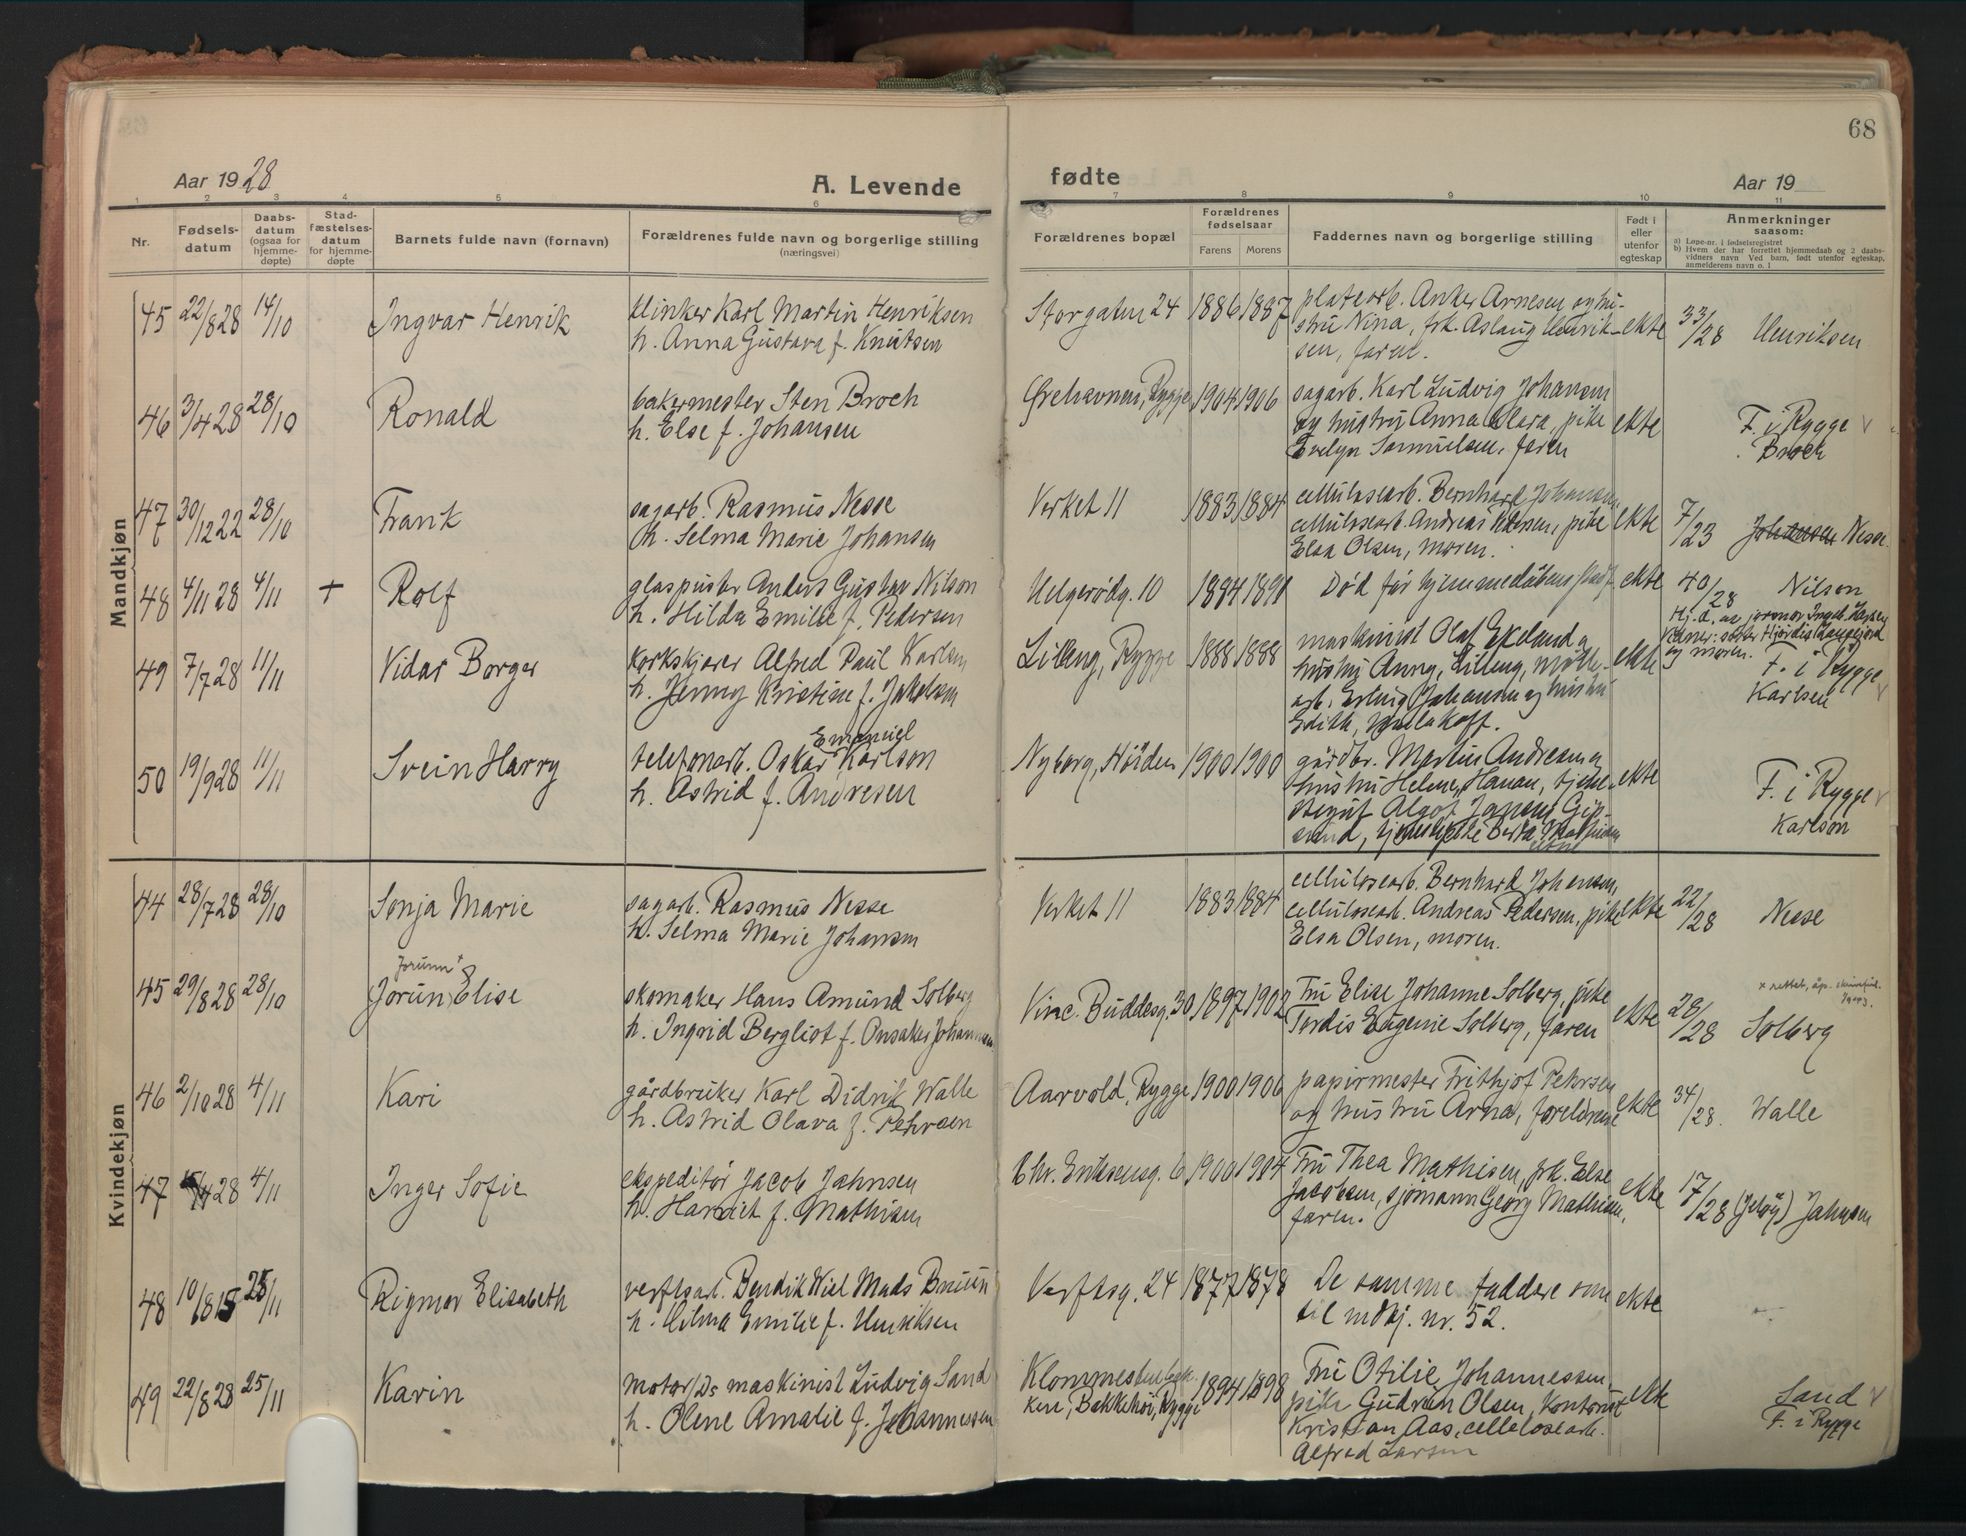 68
Aar 1928
A. Levende
fødte
Aar 19
1 2 3 4 5 6 7 8 9 10 11
Nr.
Fødsels-
datum
Daabs-
datum
(ogsaa for
hjemme-
døpte)
Stad-
fæstelses-
datum
for hjemme-
døpte
Barnets fulde navn (fornavn)
Forældrenes fulde navn og borgerlige stilling
(næringsvei)
Forældrenes bopæl
Forældrenes
fødselsaar
Farens Morens
Faddernes navn og borgerlige stilling
Født i
eller
utenfor
egteskap
Anmerkninger
saasom:
a) Løpe-nr. i fødselsregistret
b) Hvem der har forrettet hjemmedaab og 2 daabs-
vidners navn Ved barn, født utenfor egteskap,
anmelderens navn o. l
Mandkjøn
45 22/8 28 14/10 Ingvar Henrik
klinker Karl Martin Henriksen
h. Anna Gustava f. Knutsen
Storgaten 24 1886 1887
platearb. Anker Arnesen og hu-
stru Nina, frk. Aslaug Henrik-
sen, faren.
ekte 33/28 Henriksen
46 3/4 28 28/10 Ronald
bakermester Sten Broch
h. Else f. Johansen
Ørehavnen, Rygge 1904 1906
sagarb. Karl Ludvig Johansen
og hustru Anna Klara, pike
Evelyn Samuelsen, faren
ekte F. i Rygge
Broch
47 30/12 22 28/10 Frank
sagarb. Rasmus Nesse
h. Selma Marie Johansen
Verket 11 1883 1884
cellulosearb. Bernhard Johansen,
cellulosearb. Andreas Pedersen, pike
Elsa Olsen, moren.
ekte 7/23 Johansen Nesse
48 4/11 28 4/11 + Rolf
glaspuster Anders Gustav Nilson
h. Hilda Emilie f. Pedersen
Helgerødg. 10 1894
Død før hjemmedåbens
ekte 40/28 Nilson
Hj. d. av jormor Ingeb. Larsen
Vidner: søster Hjördis
og moren.
49 7/7 28 11/11 Vidar Borger
korkskjærer Alfred Paul Karlsen
h. Jenny Kristine f. Jakobsen
Lilleng, Rygge 1888 1888
maskinist Olaf Ekelund og
hustru Anna, Lilleng,
arb. Erling Johansen og hustru
Edith,
ekte F. i Rygge
Karlsen
50 19/9 28 11/11 Svein Harry
Emanuel
telefonarb. Oskar Karlson
h. Astrid f. Andresen
Nyborg, Höiden 1900 1900
gårdbr. Martin Andresen og
hustru Helene, Hanan,
Algot
ekte F. i Rygge
Karlson
Kvindekjøn
44 28/7 28 28/10 Sonja Marie
sagarb. Rasmus Nesse
h. Selma Marie Johansen
Verket 11 1883 1884
cellulosearb. Bernhard Johansen,
cellulosearb. Andreas Pedersen, pike
Elsa Olsen, moren.
ekte 22/28 Nesse
Jorunn +
45 29/8 28 28/10 Jorun Elise
skomaker Hans Amund Solberg
h. Ingrid Bergliot f. Onsaker Johannesen
Vinc. Buddesg. 30 1897 1902
Fru Elise Johanne Solberg, pike
Tordis Eugenie Solberg, faren
ekte 28/28 Solberg
46 2/10 28 4/11 Kari
gårdbruker Karl Didrik Walle
h. Astrid Olava f. Pehrsen
Aarvold, Rygge 1900 1906
papirmester Frithjof Pehrsen
og hustru Arna, foreldrene
ekte 34/28. Walle
47 28 4/11 Inger Sofie
ekspeditør Jacob Jahnsen
h. Harriet f. Mathisen
Chr. Eriksensg. 6 1900 1904
Fru Thea Mathisen, frk. Else
Jacobsen, sjömann Georg Mathisen,
faren.
ekte 17/28 (Jelöy) Jahnsen
48 10/8 15 25/11 Rigmor Elisabeth
verftsarb. Bendik Niel Mads Bruun
h. Hilma Emilie f. Henriksen
Verftsg. 24 1877 1878
De samme faddere som
til mdkj. nr. 52.
ekte
49 22/8 28 25/11 Karin
motor/Ds maskinist Ludvig Sand
h. Olene Amalie f. Johannessen
Bakkehöi, Rygge 1894 1898
Fru Otilie Johannessen,
pike Gudrun Olsen, kontorist
Kristian Aas, cellulosearb.
Alfred Larsen
ekte Sand
F. i Rygge